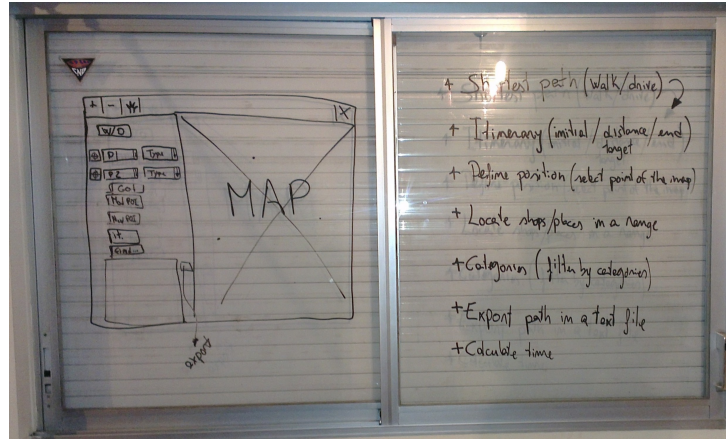 + | - |
X
W/D
P1 Type
P2 Type
GO!
New POI
it.
Find...
MAP
+ Shortest path (walk/drive)
+ Itinerary (initial/distance/end)
target
+ Define position (select point of the map)
+ Locate shops/places in a range
+ Categories (filter by categories)
+ Export path in a text file
+ Calculate time